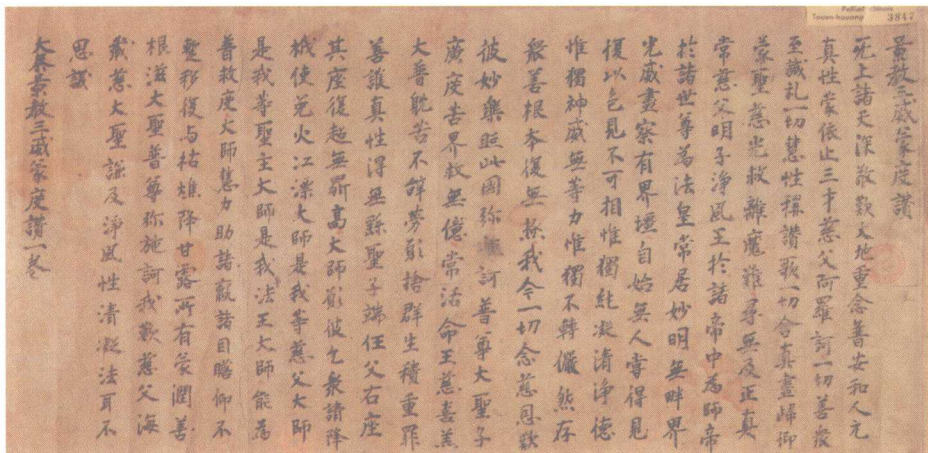 Pelliot chinois
Touen-houang 3847
景教三威蒙度讚
无上諸天深敬歎大地重念普安和人元
真性蒙依止三才慈父阿羅訶一切善衆
至誠礼一切慧性稱讚歌一切含真盡歸仰
蒙聖慈光救離魔難尋無及正真
常慈父明子淨風王於諸帝中為師帝
於諸世尊為法皇常居妙明無畔界
光威盡察有界壃自始無人嘗得見
復以色見不可相惟獨純凝清淨德
惟獨神威無等力惟獨不轉儼然存
衆善根本復無極我今一切念慈恩歎
彼妙樂照此國弥施訶普尊大聖子
廣度苦界救無億常活命王慈喜羔
大普耽苦不辝勞願捨群生積重罪
善護真性得無繇聖子端任父右座
其座復超無鼎高大師願彼乞衆請降
栰使免火江漂大師是我等慈父大師
是我等聖主大師是我法王大師能為
普救度大師慧力助諸羸諸目瞻仰不
蹔移復与枯燋降甘露所有蒙潤善
根滋大聖普尊弥施訶我歎慈父海
藏慈大聖謙及淨風性清凝法耳不
思議
大秦景教三威蒙度讚一卷